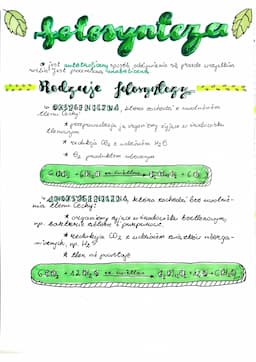 fotosynteza
* jest autotroficzny sposób odżywiania się przede wszystkim
roślin jest przemianą anaboliczną
Rodzaje fotosyntezy
OKSYGENICZNA, która zachodzi z uwolnieniem
tlenu. Cechy:
* przeprowadzają ją organizmy żyjące w środowisku
tlenowym
* redukcja CO₂ z udziałem H₂O
* O₂ produktem ubocznym
6 CO₂ + 6 H₂O en. świetlna → C₆H₁₂O₆ + 6 O₂
ANOKSYGENICZNA, która zachodzi bez uwolnie-
nia tlenu. Cechy:
* organizmy żyjące w środowisku beztlenowym,
np. bakterie zielone i purpurowe.
* redukcja CO₂ z udziałem związków nieorga-
nicznych, np. H₂S
* tlen nie powstaje
6 CO₂ + 12 H₂S en. świetlna → C₆H₁₂O₆ + 12 S + 6 H₂O